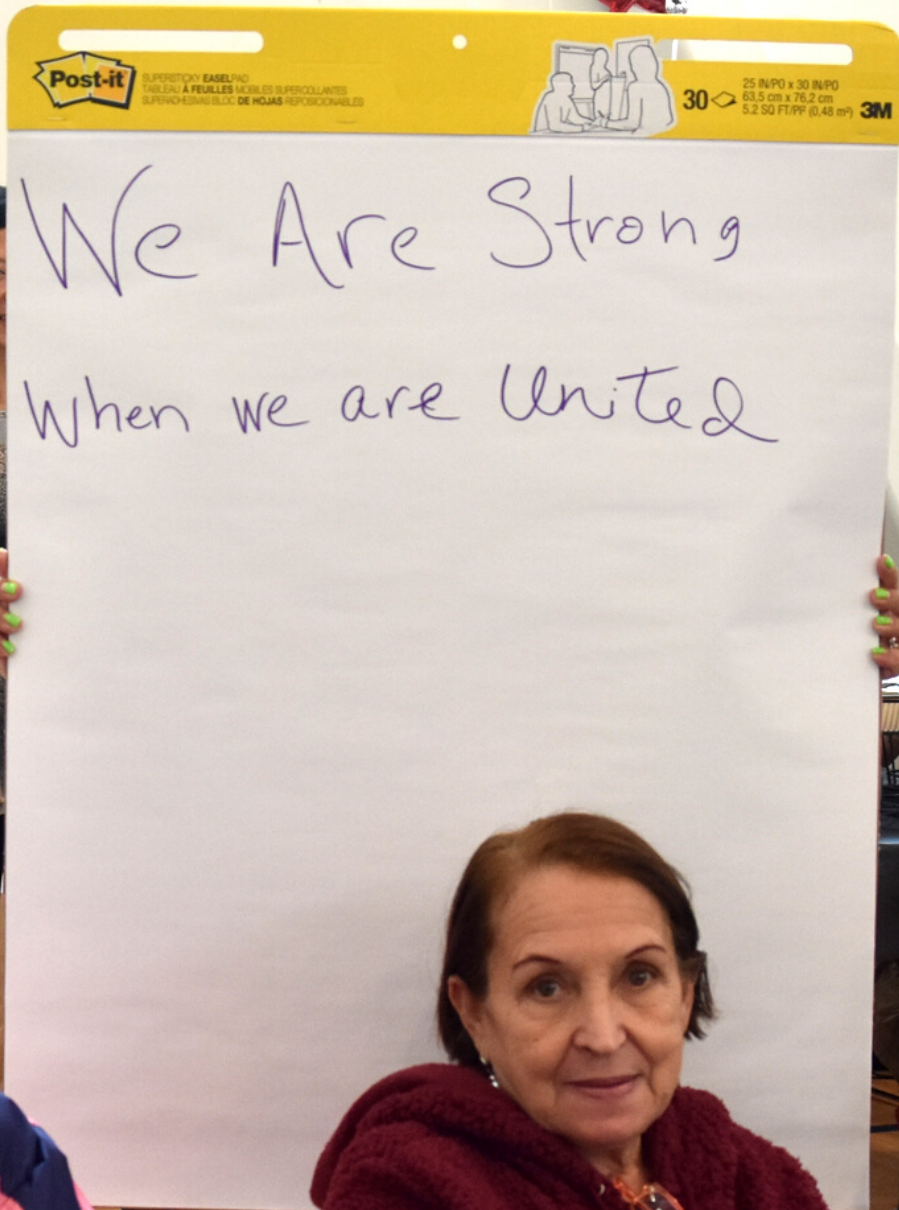 Post-it
SUPERSTICKY EASEL PAD
TABLEAU À FEUILLES MOBILES SUPERCOLLANTES
SUPERADHESIVAS BLOC DE HOJAS REPOSICIONABLES
30
25 IN/PO x 30 IN/PO
63,5 cm x 76,2 cm
5.2 SQ FT/PI² (0,48 m²)
3M
We Are Strong
When we are United